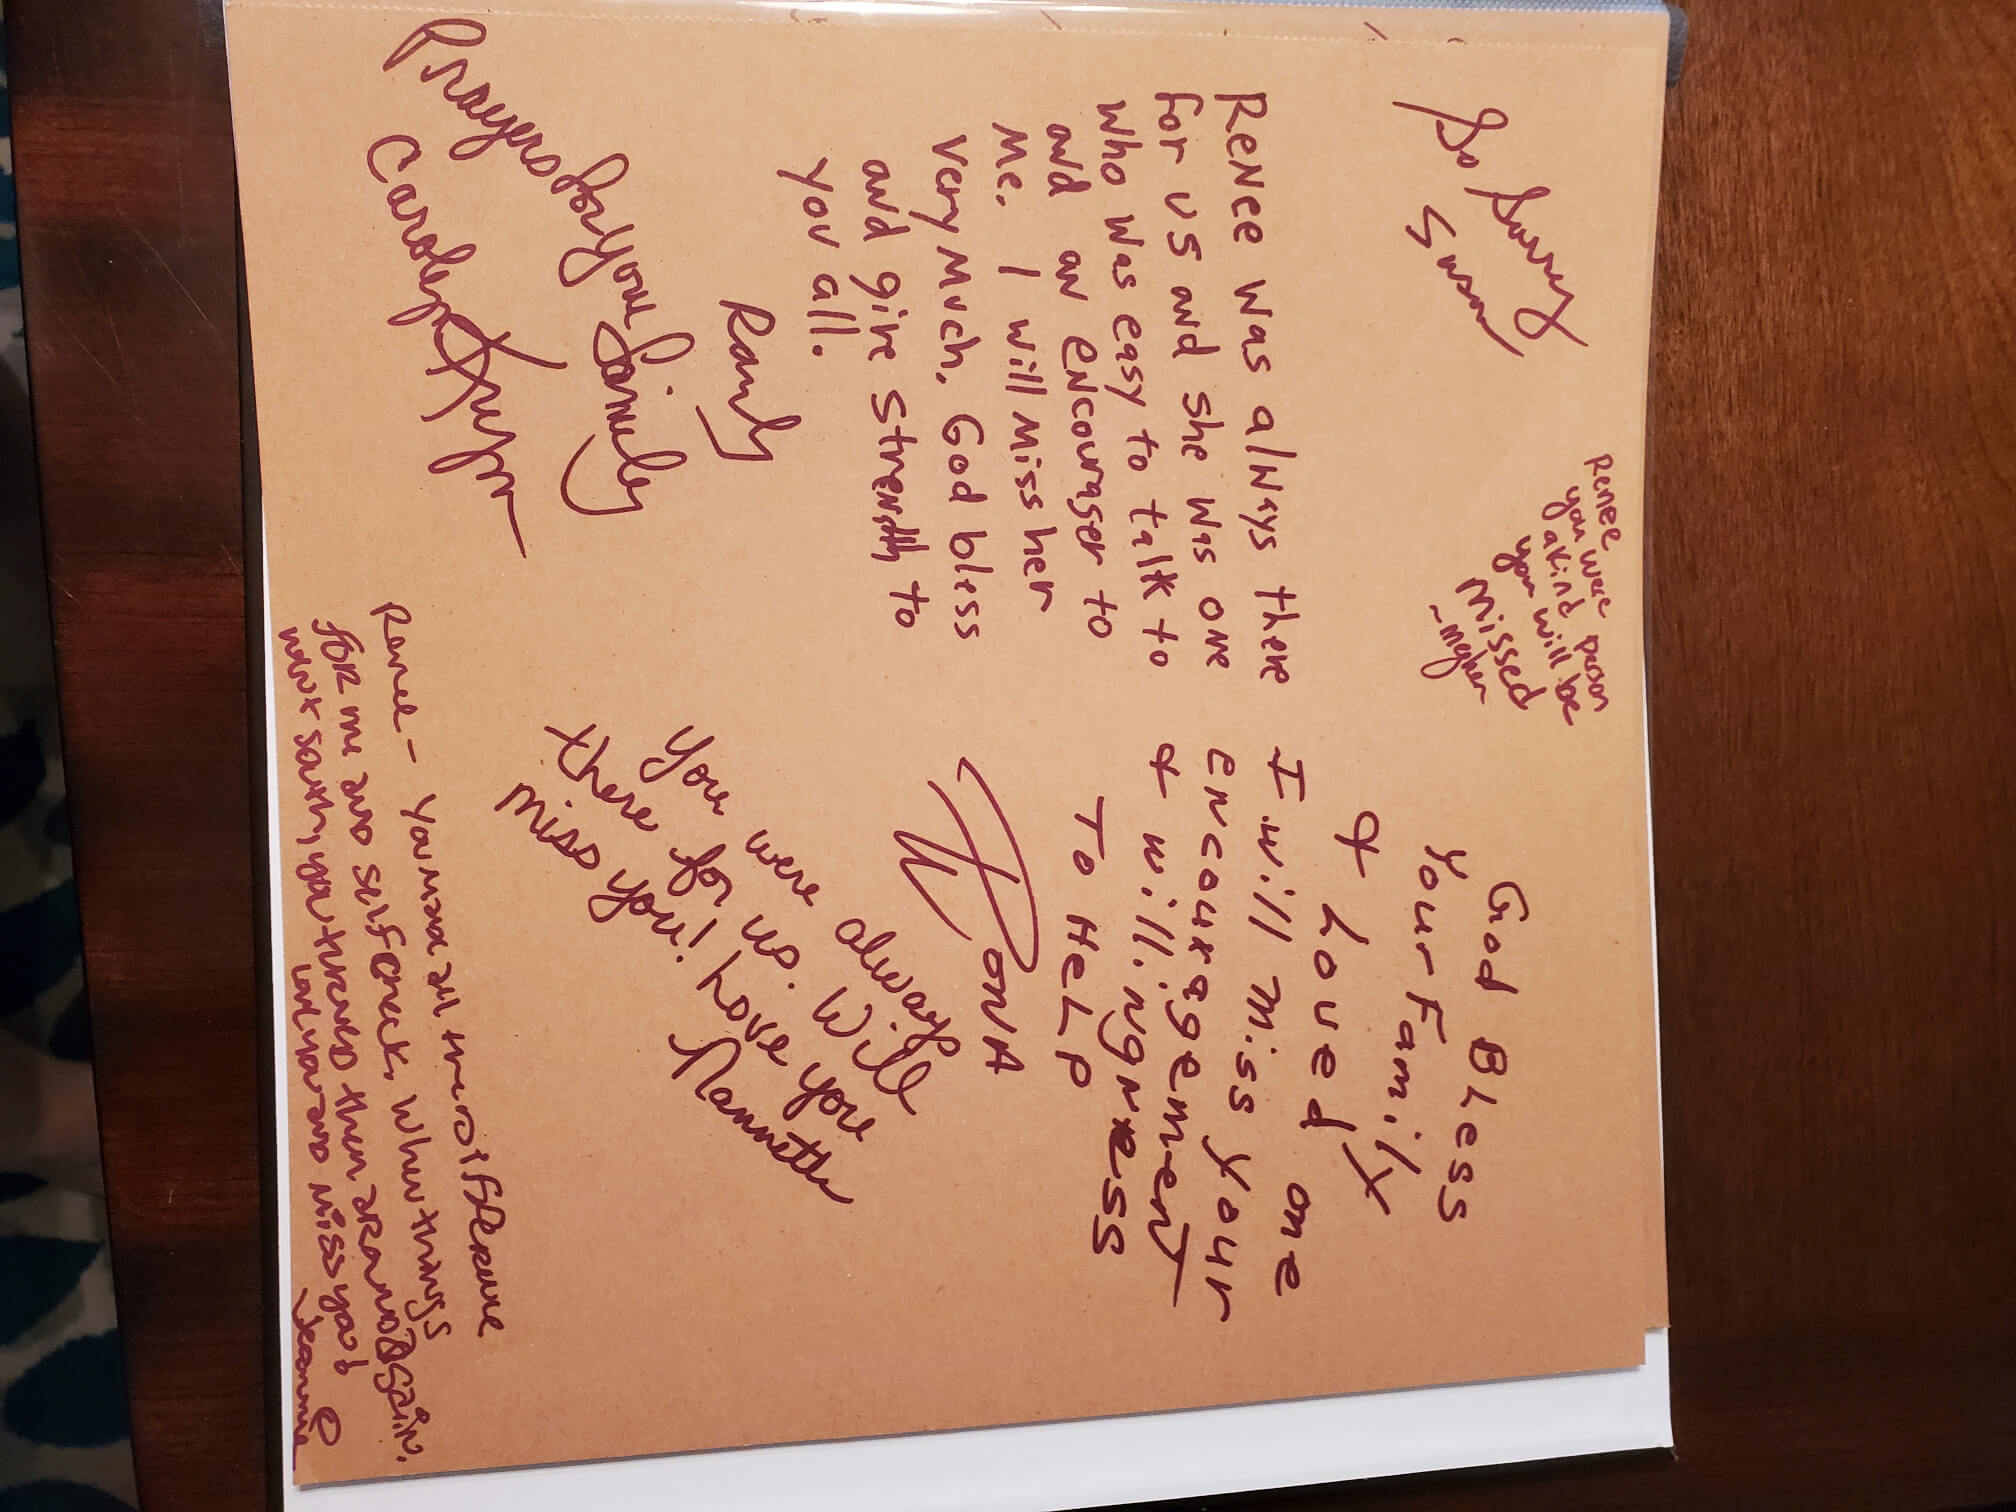 So Sorry
Susan
Renee
you were
a kind person
you will be
missed
~ Meghan
ReNee was always there
for us and she was one
who was easy to talk to
and an encourager to
Me. I will Miss her
very Much. God bless
and give strength to
you all.
Randy
God Bless
Your Family
& Loved one
I will miss your
encouragement
& willingness
To HeLP
RONA
Prayers for your family
Carolyn
You were always
there for us. Will
miss you! Love you
Nannette
Renee - You made all the difference
FOR me and self check. When things
went south, you turned them around again.
Love you and miss you!
Jeannie